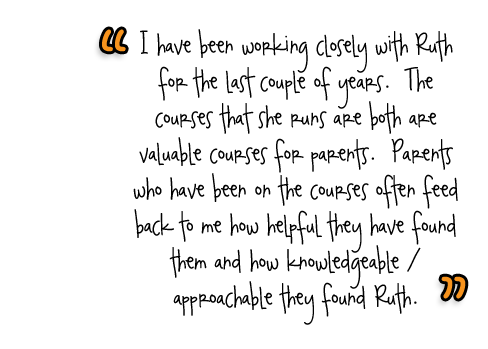 “ I have been working closely with Ruth
for the last couple of years. The
courses that she runs are both are
valuable courses for parents. Parents
who have been on the courses often feed
back to me how helpful they have found
them and how knowledgeable /
approachable they found Ruth. ”